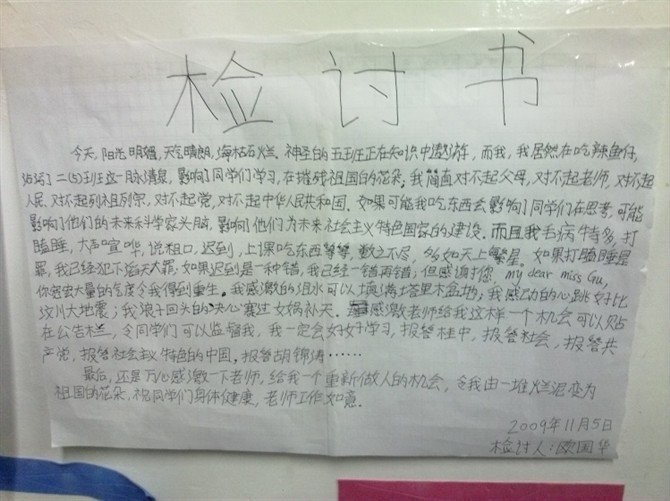 检讨书
今天,阳光明媚,天气晴朗,海枯石烂。神圣的五班正在知识中遨游,而我,我居然在吃辣鱼仔,
沾污了二(5)班这一脉清泉,影响了同学们学习,在摧残祖国的花朵,我简直对不起父母,对不起老师,对不起
人民,对不起列祖列宗,对不起党,对不起中华人民共和国,如果可能我吃东西会影响了同学们在思考,可能
影响了他们的未来科学家头脑,影响了他们为未来社会主义特色国家的建设。而且我毛病特多,打
瞌睡,大声喧哗,说粗口,迟到,上课吃东西等等,数之不尽,多如天上繁星。如果打瞌睡是
罪,我已经犯下滔天大罪;如果迟到是一种错,我已经一错再错;但感谢您 my dear miss Gu,
你宽宏大量的气度令我得到重生。我感激的泪水可以填满塔里木盆地;我感动的心跳好比
汶川大地震;我浪子回头的决心赛过女娲补天。感激老师给我这样一个机会可以贴
在公告栏,令同学们可以监督我,我一定会好好学习,报答桂中,报答社会,报答共
产党,报答社会主义特色的中国,报答胡锦涛……
最后,还是万心感激一下老师,给我一个重新做人的机会,令我由一堆烂泥变为
祖国的花朵,祝同学们身体健康,老师工作如意.
2009年11月5日
检讨人:欧国华